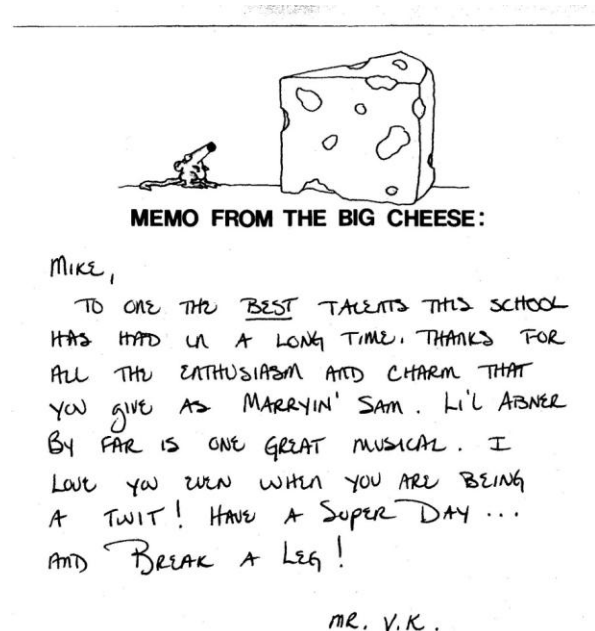 MEMO FROM THE BIG CHEESE:
MIKE,
TO ONE THE BEST TALENTS THIS SCHOOL
HAS HAD IN A LONG TIME. THANKS FOR
ALL THE ENTHUSIASM AND CHARM THAT
YOU GIVE AS MARRYIN' SAM. LI'L ABNER
BY FAR IS ONE GREAT MUSICAL. I
LOVE YOU EVEN WHEN YOU ARE BEING
A TWIT! HAVE A SUPER DAY...
AND BREAK A LEG!
MR. V.K.